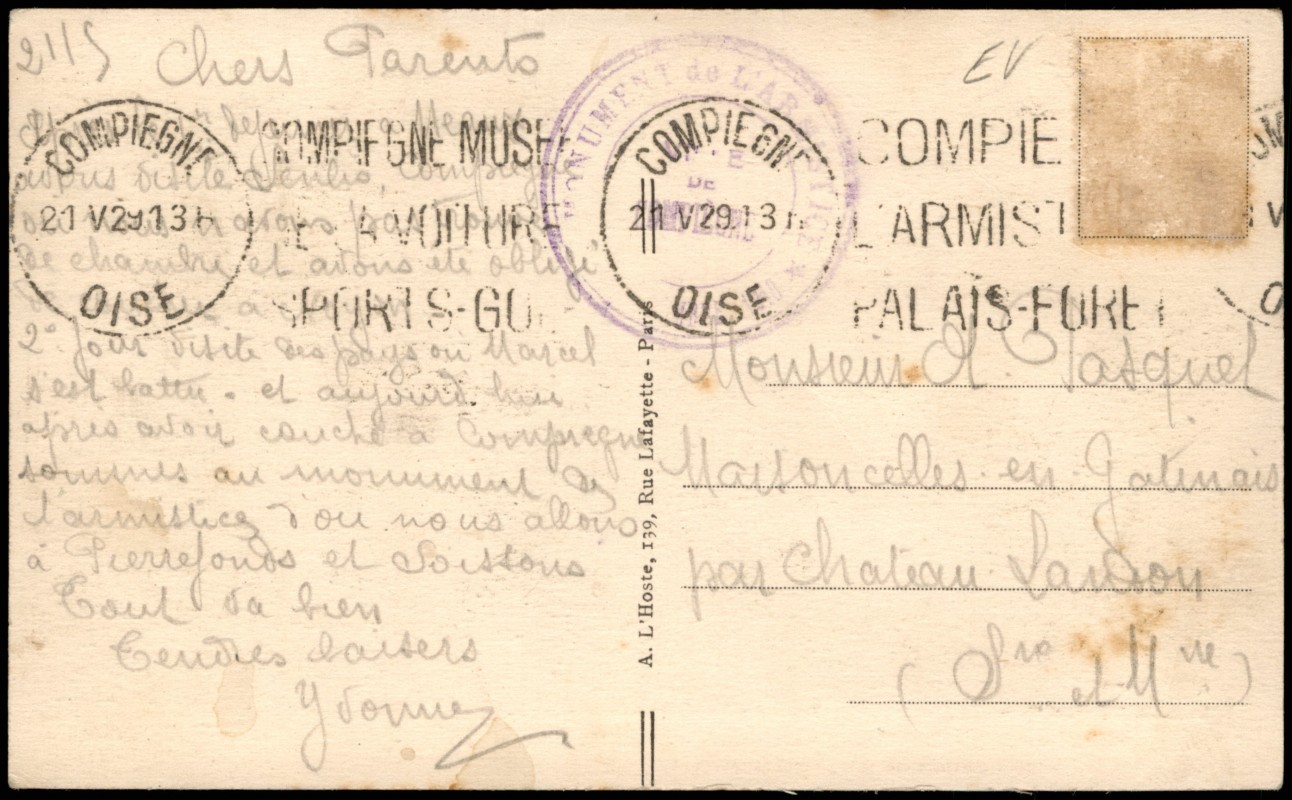 21 5
Chers Parents
avons visité Senlis, Compiègne
où nous avons pas trouvé
de chambre et avons été obligé
2e Jour visite des pays ou Marcel
s'est battu. et aujourd'hui
après avoir couché à Compiegne
sommes au monument de
l'armistice d'ou nous allons
à Pierrefonds et Soissons
Tout va bien
Tendres baisers
Yvonne
COMPIEGNE
21 V 29 13 H
OISE
COMPIEGNE MUSEE
DE LA VOITURE
SPORTS-GO
MONUMENT de L'ARMISTICE
DE
COMPIEGNE
COMPIEGNE
21 V 29 13 H
OISE
COMPIE
L'ARMIST
PALAIS-FORET
EV
A. L'Hoste, 139, Rue Lafayette - Paris
Monsieur A. Pasquet
Maisoncelles-en-Gatinais
par Chateau Landon
(Sne et Mne)